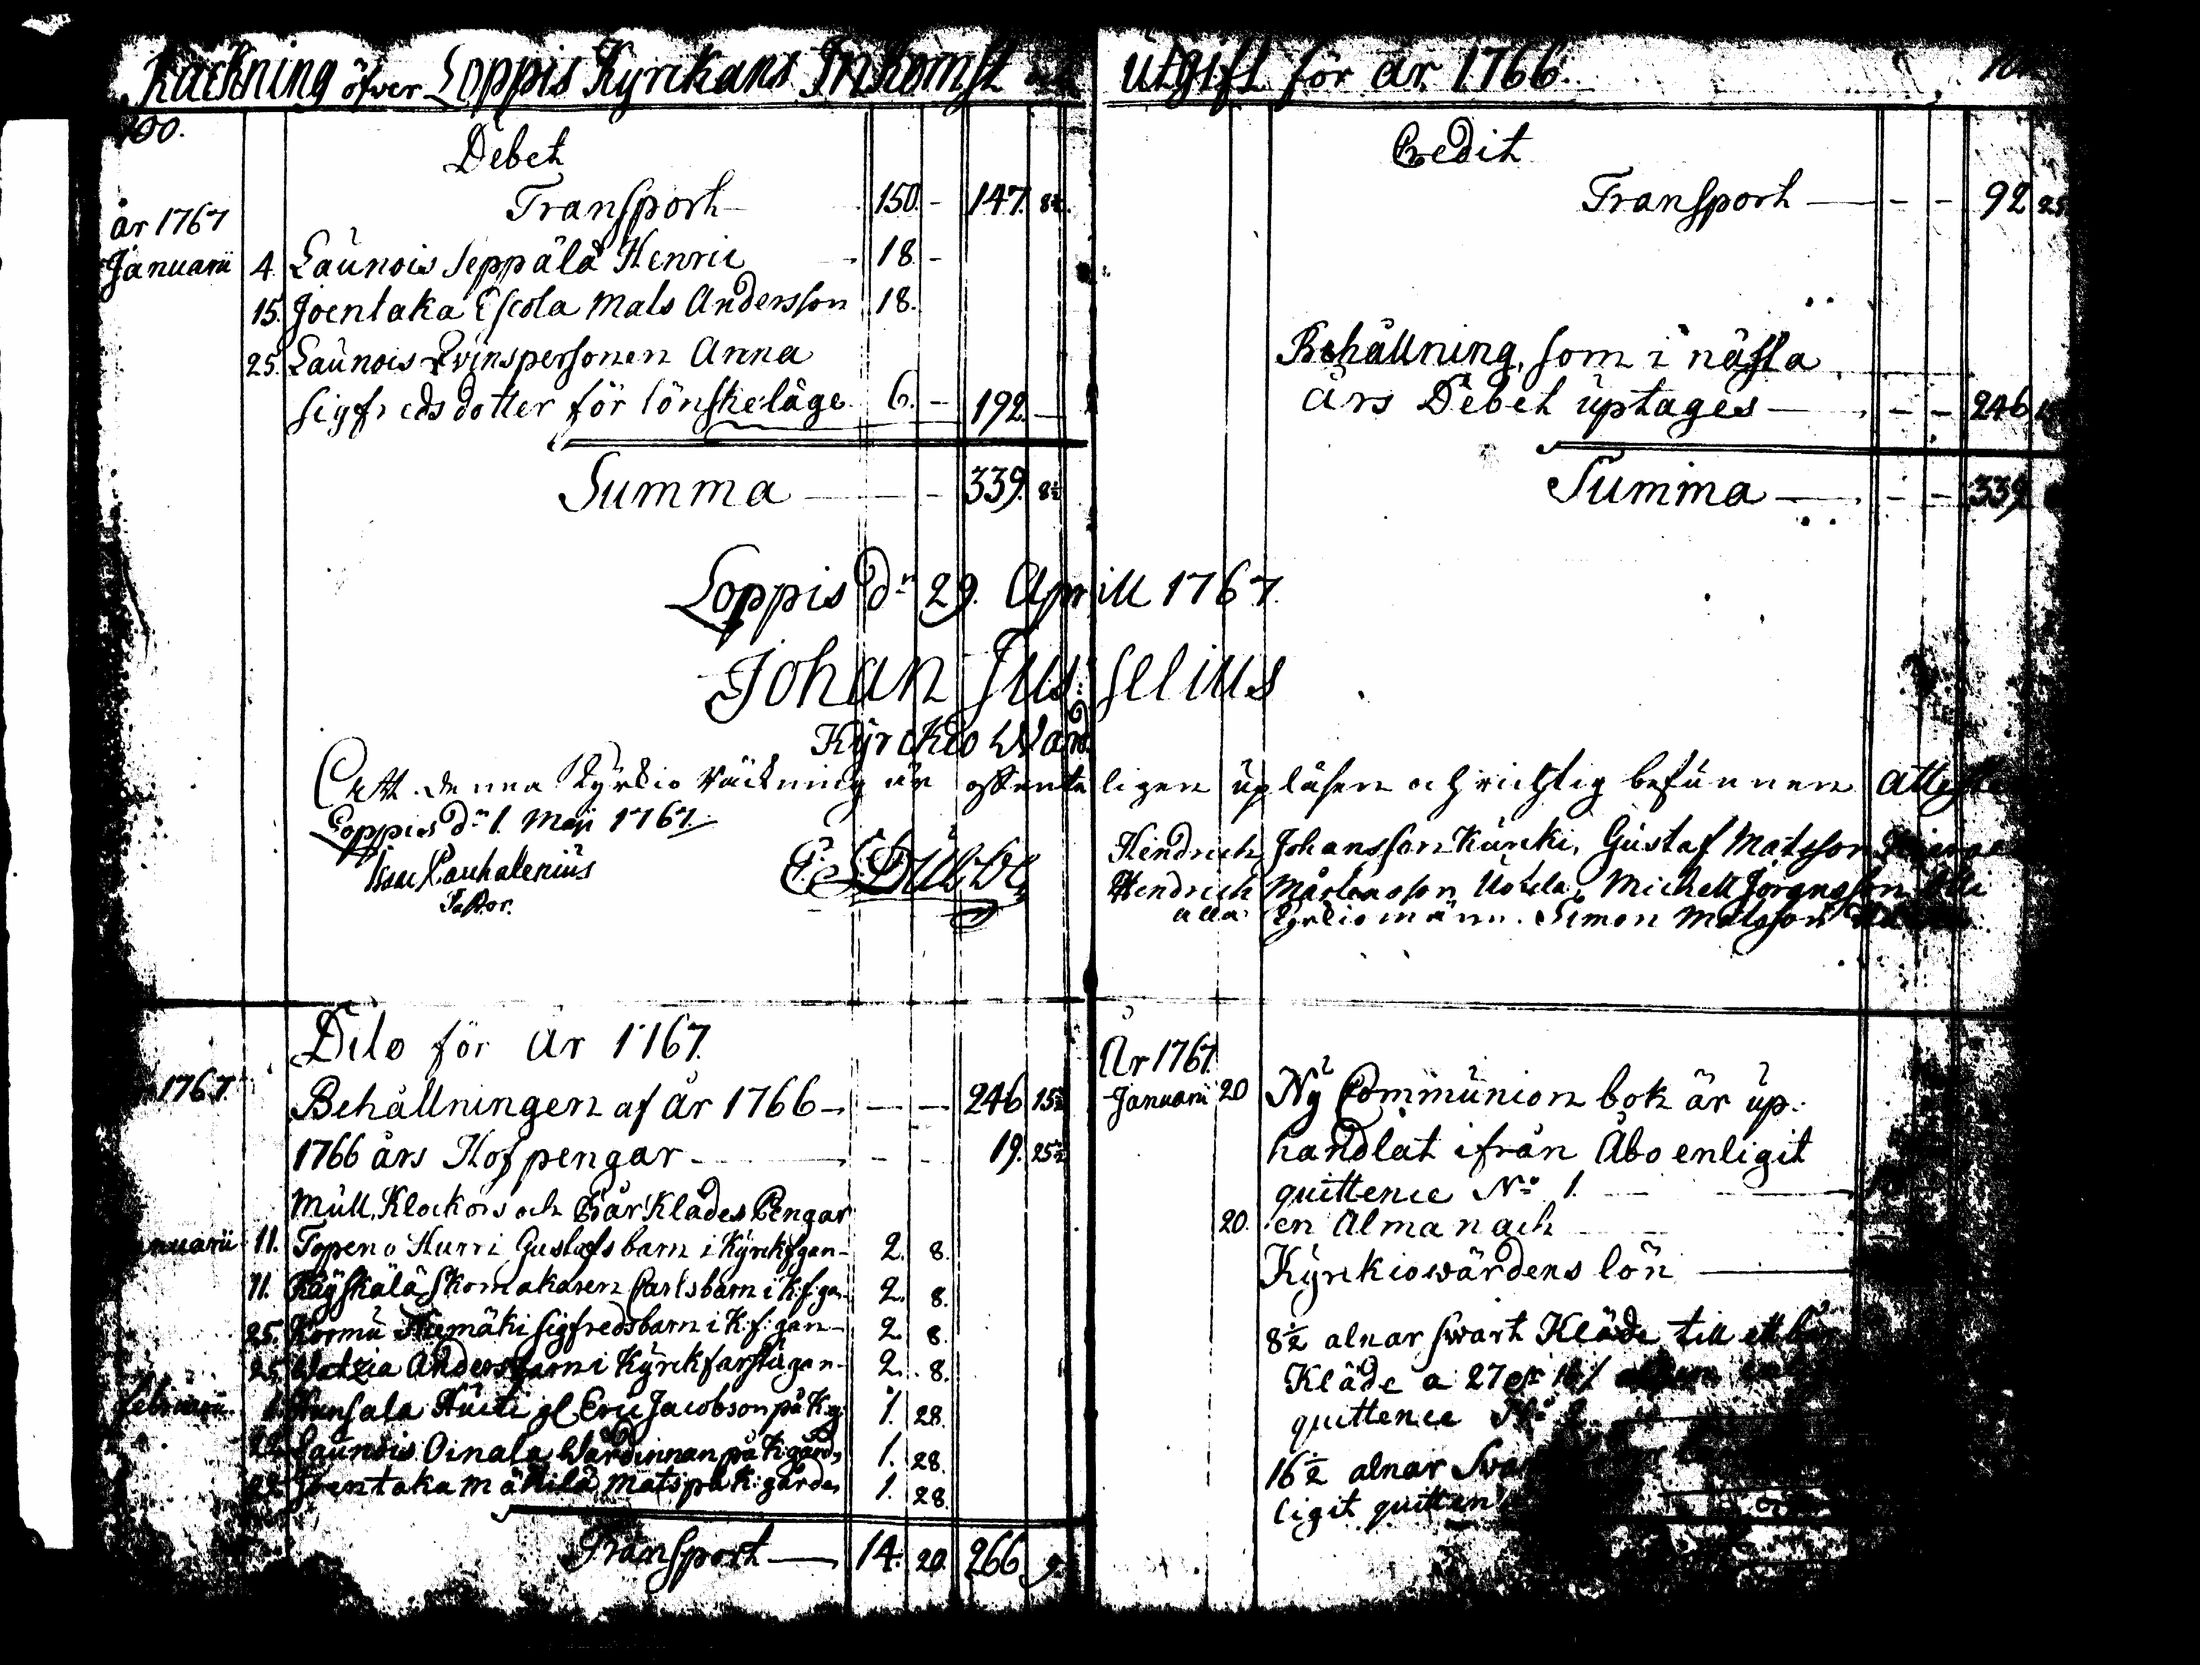 Räckning öfver Loppis Kyrckans Inkomst och
100.
Debet
Transport 150. - 147. 8½.
år 1767
Januarii 4. Launois Seppälä Henric 18 -
15. Joentaka Escola Mats Andersson 18.
25. Launois Qvinspersonen Anna
Sigfredsdotter för lönskeläge 6. - 192. -
Summa - - 339. 8½
Utgift för år 1766.
Credit
Transport - - 92 25
Behållning, som i nästa
års Debet uptages - - 246
Summa - - 339
Loppis dn 29. Aprill 1767.
Johan Jusselius
Kyrckio Wärd
Att denna Kyrkio Räckning är offenteligen upläsen och richtig befunnen atteste
Loppis dn 1. Maji 1767.
Hendrich Johansson Kurcki, Gustaf Matsson
Hendrich Mårtensson Uotila, Michell Jörgensson Olli
alla Kyrkiomänn. Simon Matsson
Dito för År 1767.
1767. Behållningen af år 1766 - - 246 15½
1766 års Hofpengar - - 19. 25½
Mull, Klockors och Bår Klädes Pengar
nuarii 11. Topeno Hurri Gustafs barn i Kyrckfgån 2. 8.
11. Räyskälä Skomakaren Carls barn i K:f:gån 2. 8.
25. Kormu Niemäki Sigfreds barn i K:f:gån 2. 8.
25. Watzia Anders barn i Kyrkfarstugan 2. 8.
Februarii Hunsala Eric Jacobson på K:g 1. 28.
22. Launois Oinala Wärdinnan på K:gård, 1. 28.
22. Joentaka Mäkilä Mats på K:gården 1. 28.
Transport 14. 20. 266. 9
År 1767
Januarii 20 Ny Communion bok är up-
handlat ifrån Åbo enligit
quittence No 1.
20. en Almanach
Kyrckiowärdens lön
8½ alnar swart Kläde till ett bår
Kläde a 27
quittence No 2
16½ alnar Swa
ligit quitten